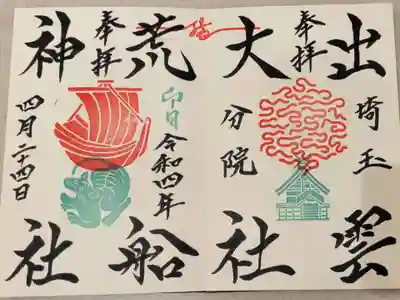 奉拝
出雲
大社
埼玉
分院
奉拝
荒船
神社
卯日
令和四年
四月二十四日